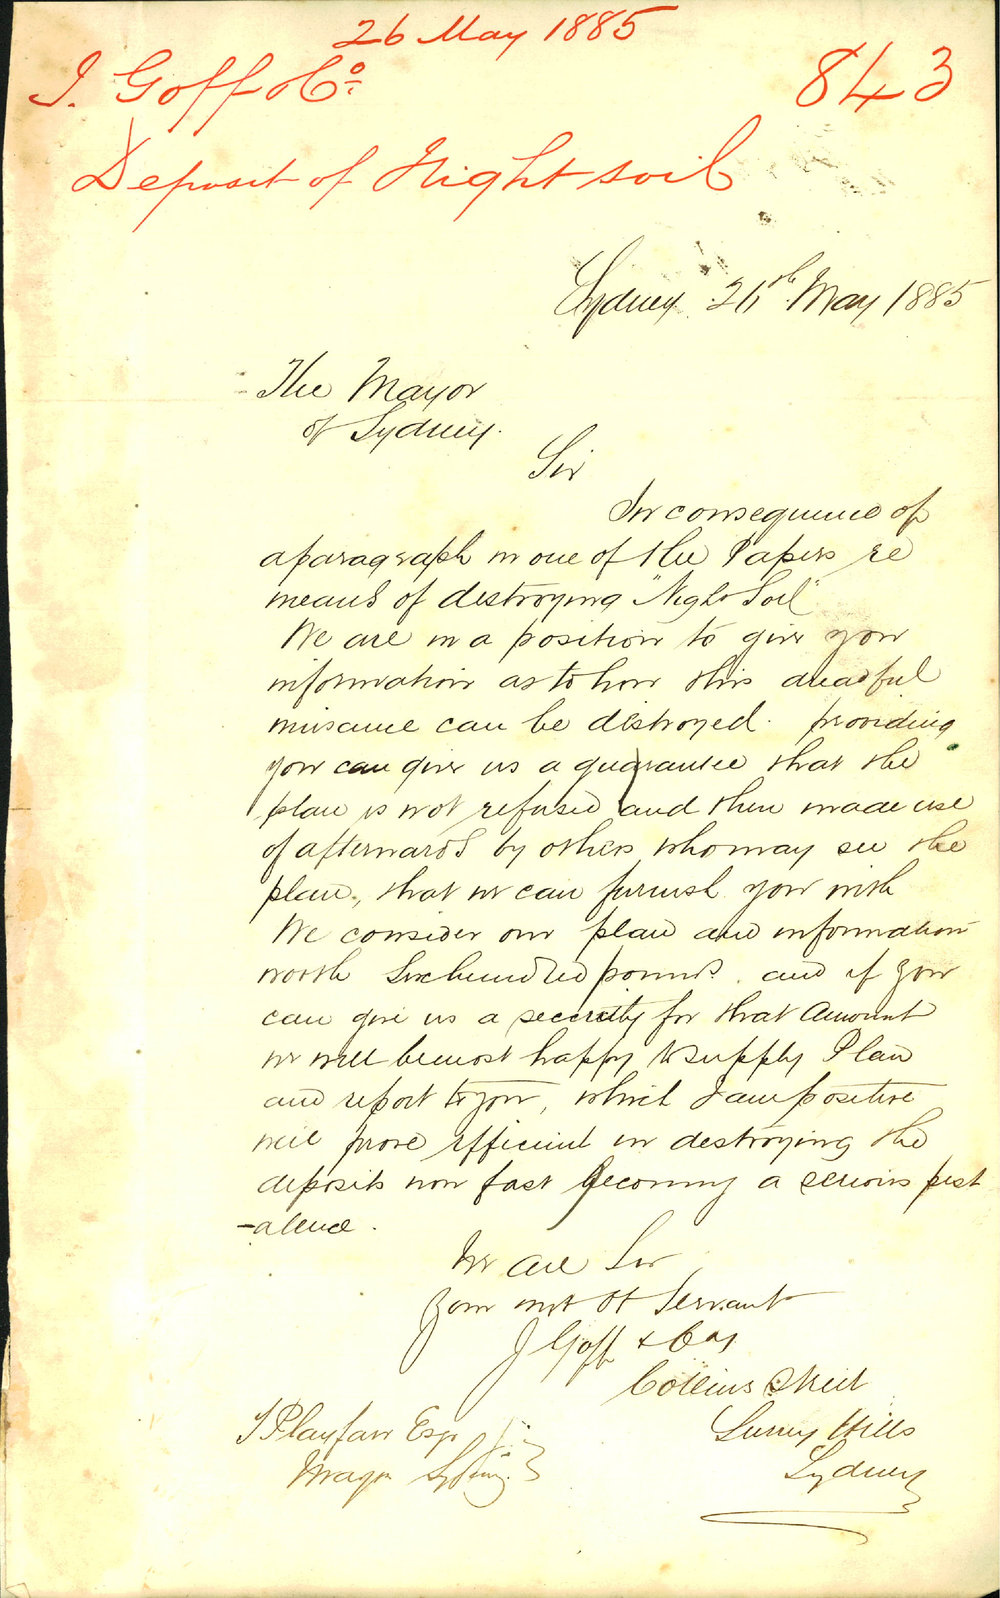 26 May 1885
J. Goff & Co.
843
Deposit of Night soil
Sydney 26th May 1885
The Mayor
of Sydney.
Sir
In consequence of
a paragraph in one of the Papers re
means of destroying "Night Soil"
We are in a position to give you
information as to how this dreadful
nuisance can be destroyed. providing
you can give us a guarantee that the
plan is not refused and then made use
of afterwards by others who may see the
plan, that we can furnish you with
We consider our plan and information
worth Six hundred pounds. and if you
can give us a security for that Amount
we will be most happy to supply Plan
and report to you, which I am positive
will prove efficient in destroying the
deposits now fast becoming a serious pest
-alence.
We are Sir
Your mst Ot Servant
J Goff & Coy
Collins Street
Surry Hills
Sydney
J Playfair Esqr
Mayor Sydney.